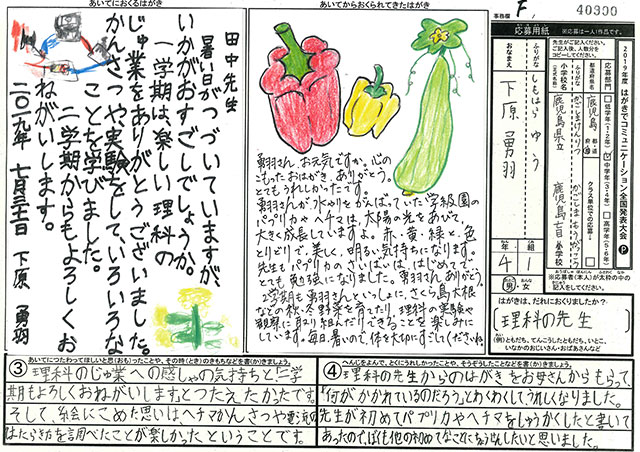 あいてにおくるはがき
田中先生
暑い日がつづいていますが、
いかがおすごしでしょうか。
一学期は、楽しい理科の
じゅ業をありがとうございました。
かんさつや実験をして、いろいろな
ことを学びました。
二学期からもよろしくお
ねがいします。
二〇一九年 七月三十一日 下原 勇羽
あいてからおくられてきたはがき
勇羽さん、お元気ですか。心の
こもったおはがき、ありがとう。
とてもうれしかったです。
勇羽さんが水やりをがんばっていた学級園の
パプリカやヘチマは、太陽の光をあびて、
大きく成長していますよ。赤・黄・緑と、色
とりどりで、美しく、明るい気持ちになります。
先生もパプリカのさいばいは、はじめてで、
とても勉強になりました。勇羽さんありがとう。
2学期も勇羽さんといっしょに、さくら島大根
などの秋・冬野菜を育てたり、理科の実験や
観察に取り組んだりできることを楽しみに
しています。毎日、暑いので、体を大切にすごしてくださいね。
事務欄 F, 40300
2019年度 はがきでコミュニケーション全国発表大会 P
応募用紙 ※応募は一人1作品です。
先生がご記入ください。
ご記入後、人数分を
コピーしてください。
応募部門
低学年(1・2年)
中学年(3・4年)
高学年(5・6年)
都道府県名
鹿児島 都・道 府・県
クラス単位での応募
ふりがな
小学校名
鹿児島県立 鹿児島盲 小学校
ふりがな しもはら ゆう
おなまえ 下原 勇羽
4年 1組
男・女
※応募者(本人)が太枠の中の
項目を記入してください。
はがきは、だれにおくりましたか?
(理科の先生)
(例)ともだち、てんこうしたともだち、いとこ、
いなかのおじいさん・おばあさんなど
③ あいてにつたわってほしいと思(おも)ったことや、その時(とき)のきもちなどを書(か)きましょう。
理科のじゅ業への感しゃの気持ちと「二学
期もよろしくおねがいします。」とつたえたかったです。
そして、絵にこめた思いは、ヘチマかんさつや電流の
はたらき方を調べたことが楽しかったということです。
④ へんじをよんで、とくにうれしかったことや、そうぞうしたことなどを書(か)きましょう。
理科の先生からのはがきをお母さんからもらって、
「何がかかれているのだろう。」とわくわくしてうれしくなりました。
先生が初めてパプリカやヘチマをしゅうかくしたと書いて
あったので、ぼくも他の初めてなことにちょうせんしたいと思いました。